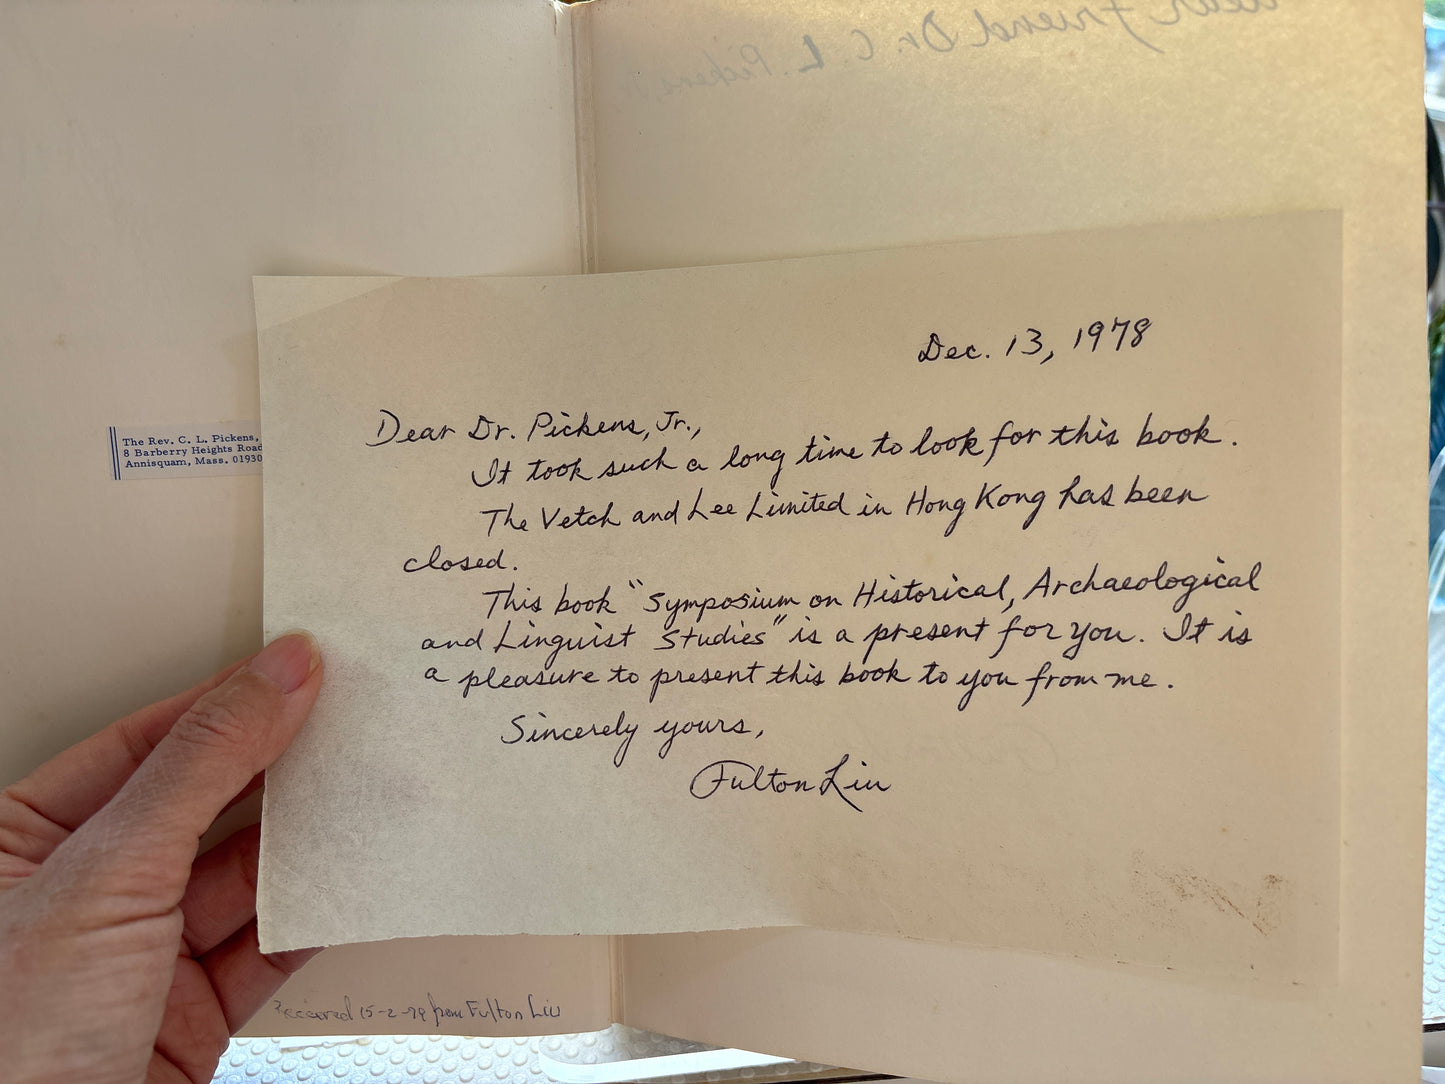 dear friend Dr. C. L. Pickens, Jr.
Dec. 13, 1978
Dear Dr. Pickens, Jr.,
It took such a long time to look for this book.
The Vetch and Lee Limited in Hong Kong has been
closed.
This book "Symposium on Historical, Archaeological
and Linguist Studies" is a present for you. It is
a pleasure to present this book to you from me.
Sincerely yours,
Fulton Liu
The Rev. C. L. Pickens,
8 Barberry Heights Road
Annisquam, Mass. 01930
Received 15-2-79 from Fulton Liu